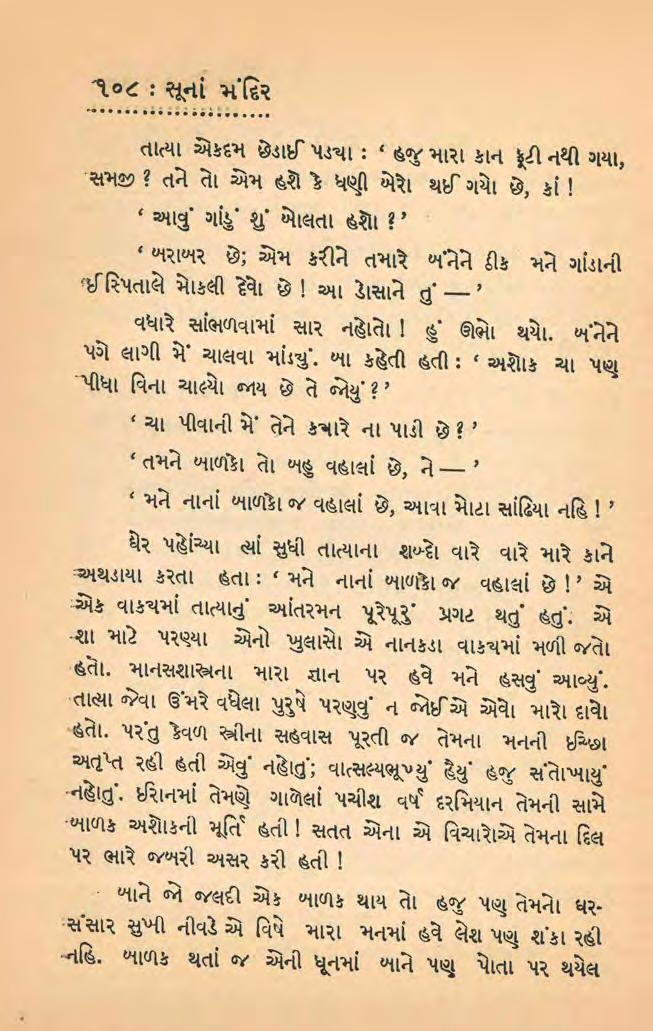 ૧૦૮ : સૂનાં મંદિર
તાત્યા એકદમ છેડાઈ પડ્યા : ‘ હજુ મારા કાન ફૂટી નથી ગયા,
સમજી ? તને તો એમ હશે કે ધણી બેરો થઈ ગયો છે, કાં !
‘ આવું ગાંડું શું બોલતા હશો ? ’
‘ બરાબર છે; એમ કરીને તમારે બંનેને ઠીક મને ગાંડાની
ઈસ્પિતાલે મોકલી દેવો છે ! આ ડોસાને તું — ’
વધારે સાંભળવામાં સાર નહોતો ! હું ઊભો થયો. બંનેને
પગે લાગી મેં ચાલવા માંડ્યું. બા કહેતી હતી : ‘ અશોક ચા પણ
પીધા વિના ચાલ્યો જાય છે તે જોયું ? ’
‘ ચા પીવાની મેં તેને ક્યારે ના પાડી છે ? ’
‘ તમને બાળકો તો બહુ વહાલાં છે, ને — ’
‘ મને નાનાં બાળકો જ વહાલાં છે, આવા મોટા સાંઢિયા નહિ ! ’
ઘેર પહોંચ્યા ત્યાં સુધી તાત્યાના શબ્દો વારે વારે મારે કાને
અથડાયા કરતા હતા : ‘ મને નાનાં બાળકો જ વહાલાં છે ! ’ એ
એક વાક્યમાં તાત્યાનું આંતરમન પૂરેપૂરું પ્રગટ થતું હતું. એ
શા માટે પરણ્યા એનો ખુલાસો એ નાનકડા વાક્યમાં મળી જતો
હતો. માનસશાસ્ત્રના મારા જ્ઞાન પર હવે મને હસવું આવ્યું.
તાત્યા જેવા ઉંમરે વધેલા પુરુષે પરણવું ન જોઈએ એવો મારો દાવો
હતો. પરંતુ કેવળ સ્ત્રીના સહવાસ પૂરતી જ તેમના મનની ઇચ્છા
અતૃપ્ત રહી હતી એવું નહોતું; વાત્સલ્યભૂખ્યું હૈયું હજુ સંતોખાયું
નહોતું. ઈરાનમાં તેમણે ગાળેલાં પચીશ વર્ષ દરમિયાન તેમની સામે
બાળક અશોકની મૂર્તિ હતી ! સતત એના એ વિચારોએ તેમના દિલ
પર ભારે જબરી અસર કરી હતી !
બાને જો જલદી એક બાળક થાય તો હજુ પણ તેમનો ઘર-
સંસાર સુખી નીવડે એ વિષે મારા મનમાં હવે લેશ પણ શંકા રહી
નહિ. બાળક થતાં જ એની ધૂનમાં બાને પણ પોતા પર થયેલ